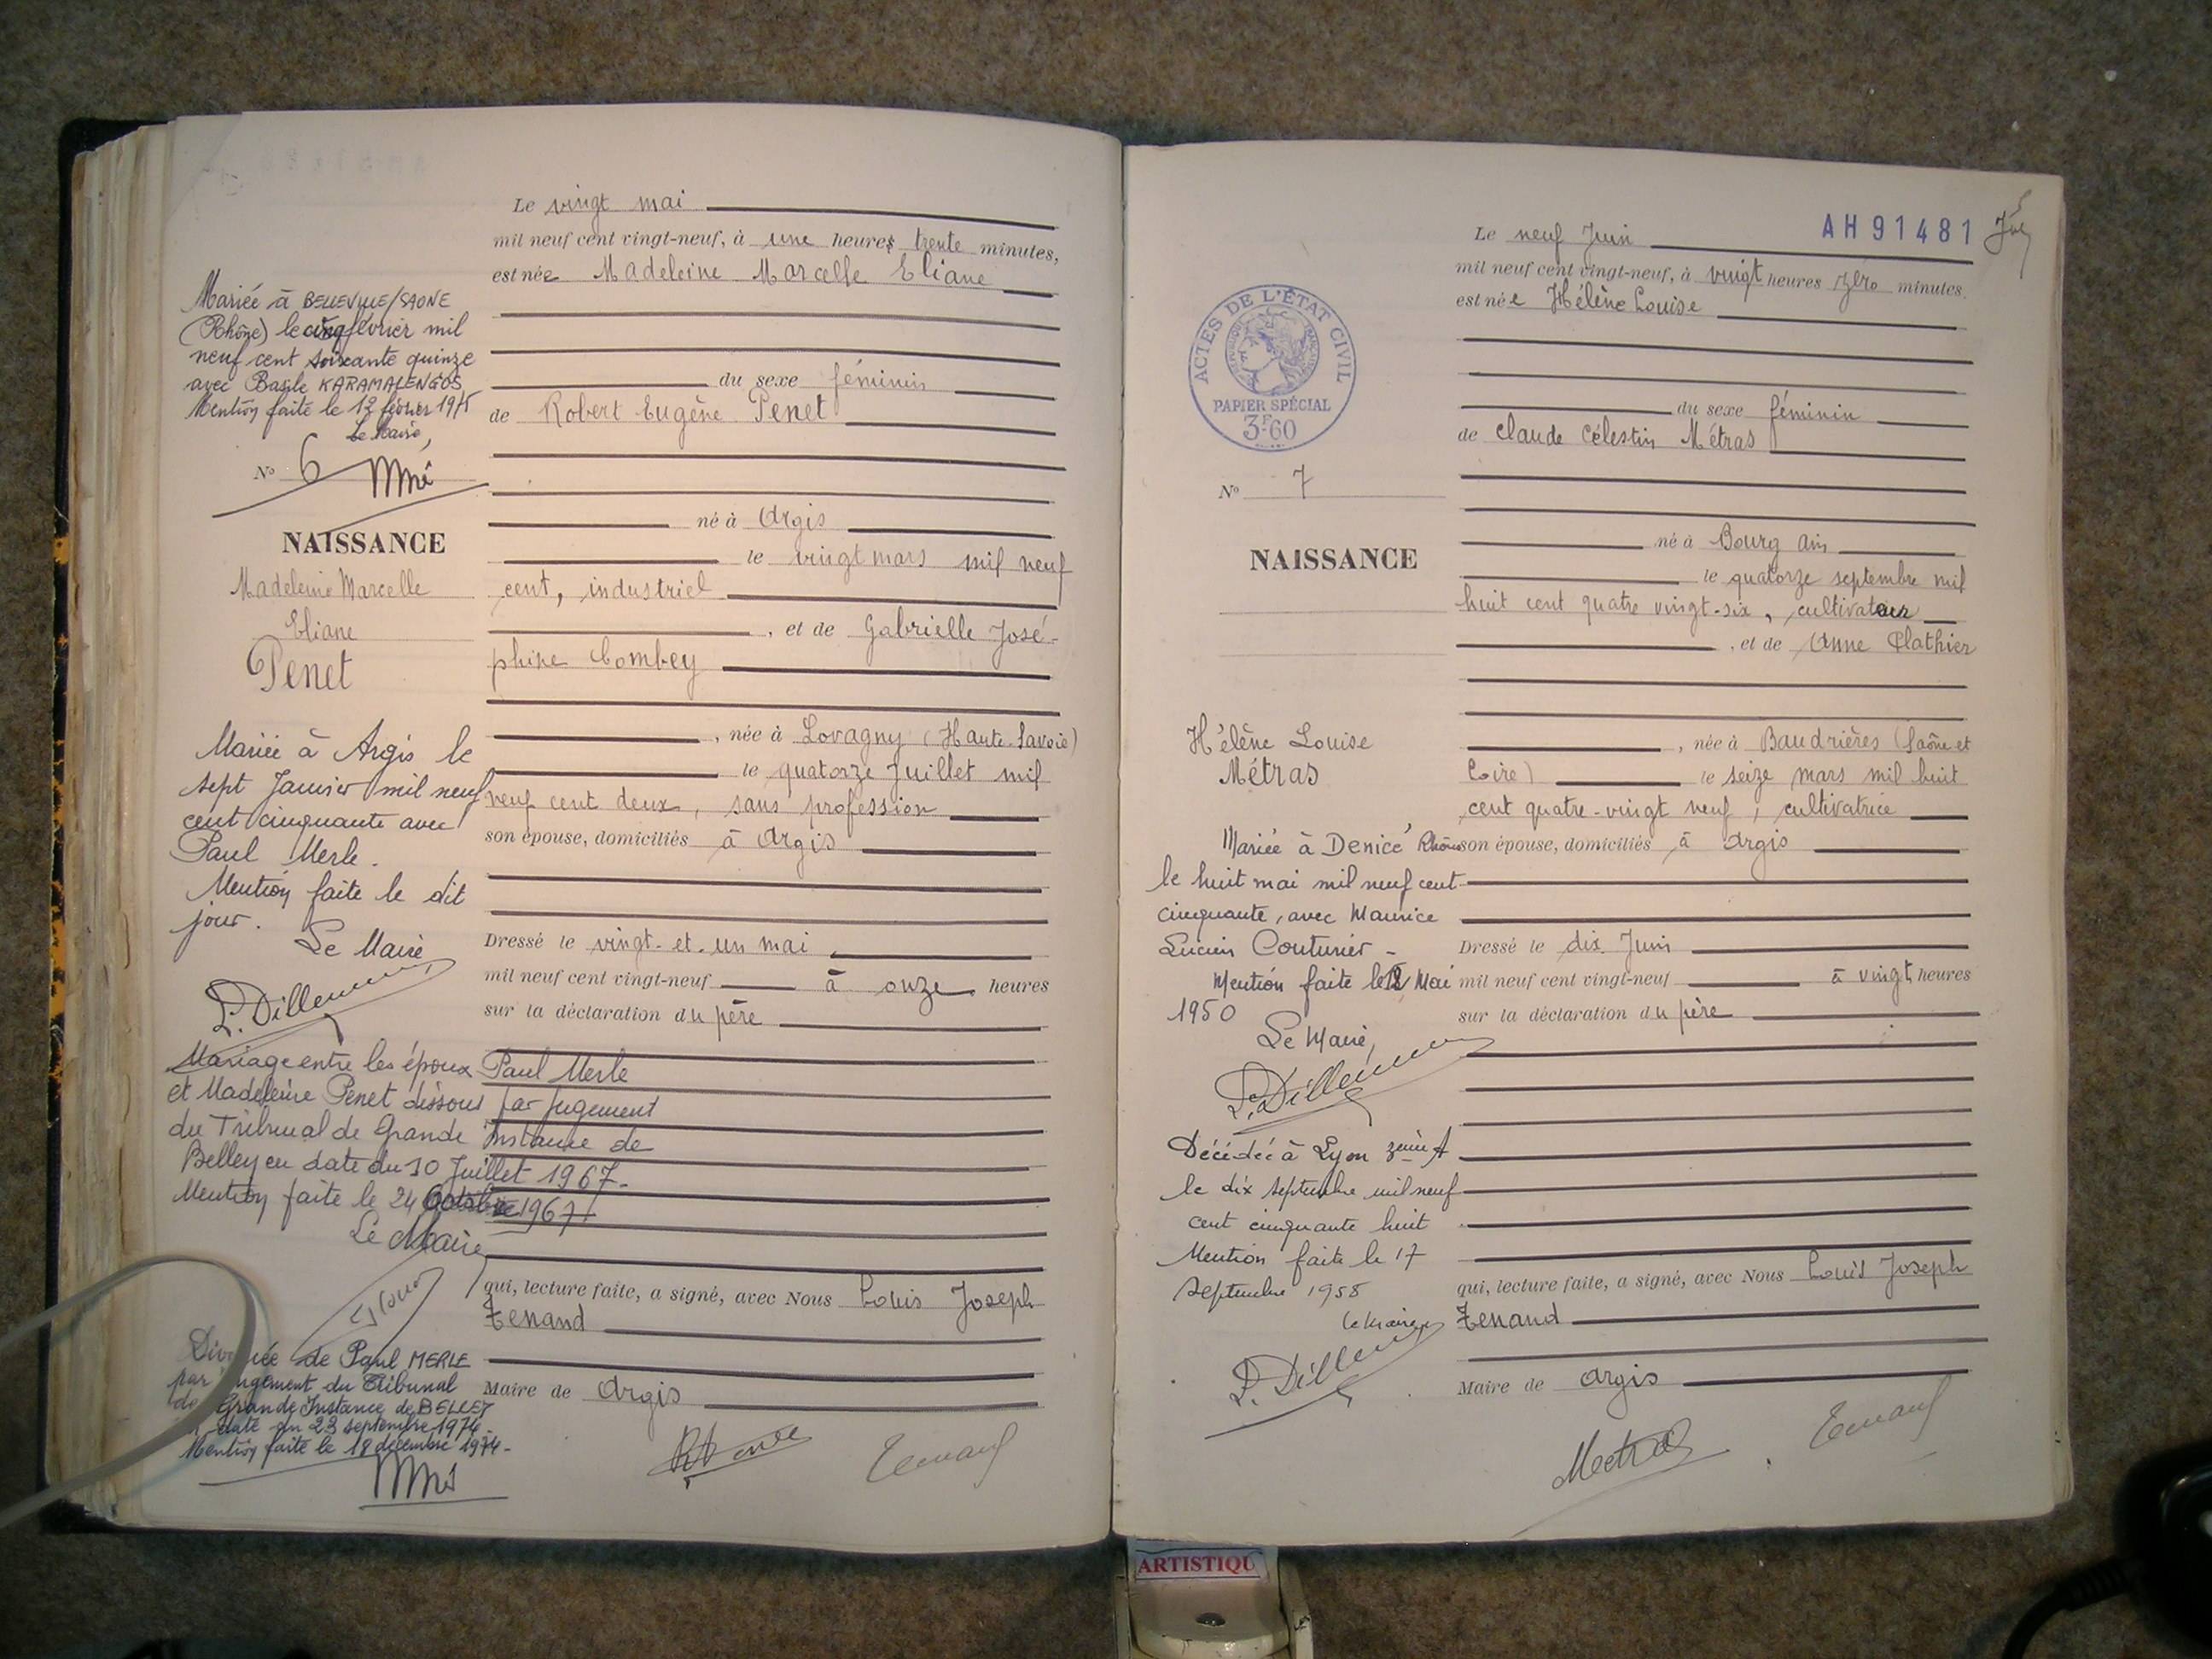 Le vingt mai
mil neuf cent vingt-neuf, à une heures trente minutes,
est née Madeleine Marcelle Eliane
du sexe féminin
de Robert Eugène Penet
né à Argis
le vingt mars mil neuf
cent, industriel
, et de Gabrielle José-
phine Combey
, née à Lovagny (Haute-Savoie)
le quatorze Juillet mil
neuf cent deux, sans profession
son épouse, domiciliés à Argis
Dressé le vingt-et-un mai
mil neuf cent vingt-neuf à onze heures
sur la déclaration du père
qui, lecture faite, a signé, avec Nous Louis Joseph
Tenand
Maire de Argis
Tenand
Mariée à BELLEVILLE/SAONE
(Rhône) le cinq février mil
neuf cent soixante quinze
avec Basile KARAMALENGOS
Mention faite le 12 février 1975
Le Maire,
N° 6
NAISSANCE
Madeleine Marcelle
Eliane
Penet
Mariée à Argis le
sept Janvier mil neuf
cent cinquante avec
Paul Merle.
Mention faite le dit
jour.
Le Maire
P. Dillemann
Mariage entre les époux Paul Merle
et Madeleine Penet dissous par jugement
du Tribunal de Grande Instance de
Belley en date du 10 Juillet 1967-
Mention faite le 24 Octobre 1967
Le Maire
Divorcée de Paul MERLE
par jugement du Tribunal
de Grande Instance de BELLEY
date du 23 septembre 1974
Mention faite le 18 décembre 1974-
AH91481
Le neuf Juin
mil neuf cent vingt-neuf, à vingt heures zéro minutes
est née Hélène Louise
du sexe féminin
de Claude Célestin Métras
né à Bourg Ain
le quatorze septembre mil
huit cent quatre vingt-six, cultivateur
, et de Anne Clathier
, née à Baudrières (Saône et
Loire) le seize mars mil huit
cent quatre-vingt neuf, cultivatrice
son épouse, domiciliés à Argis
Dressé le dix Juin
mil neuf cent vingt-neuf à vingt heures
sur la déclaration du père
qui, lecture faite, a signé, avec Nous Louis Joseph
Tenand
Maire de Argis
Metras
Tenand
ACTES DE L'ÉTAT CIVIL
RÉPUBLIQUE FRANÇAISE
PAPIER SPÉCIAL
3F60
N° 7
NAISSANCE
Hélène Louise
Métras
Mariée à Denicé Rhône
le huit mai mil neuf cent
cinquante, avec Maurice
Lucien Couturier -
Mention faite le 12 Mai
1950
Le Maire,
P. Dillemann
Décédée à Lyon 3ème A
le dix septembre mil neuf
cent cinquante huit
Mention faite le 17
septembre 1958
le maire
P. Dillemann
ARTISTIQU